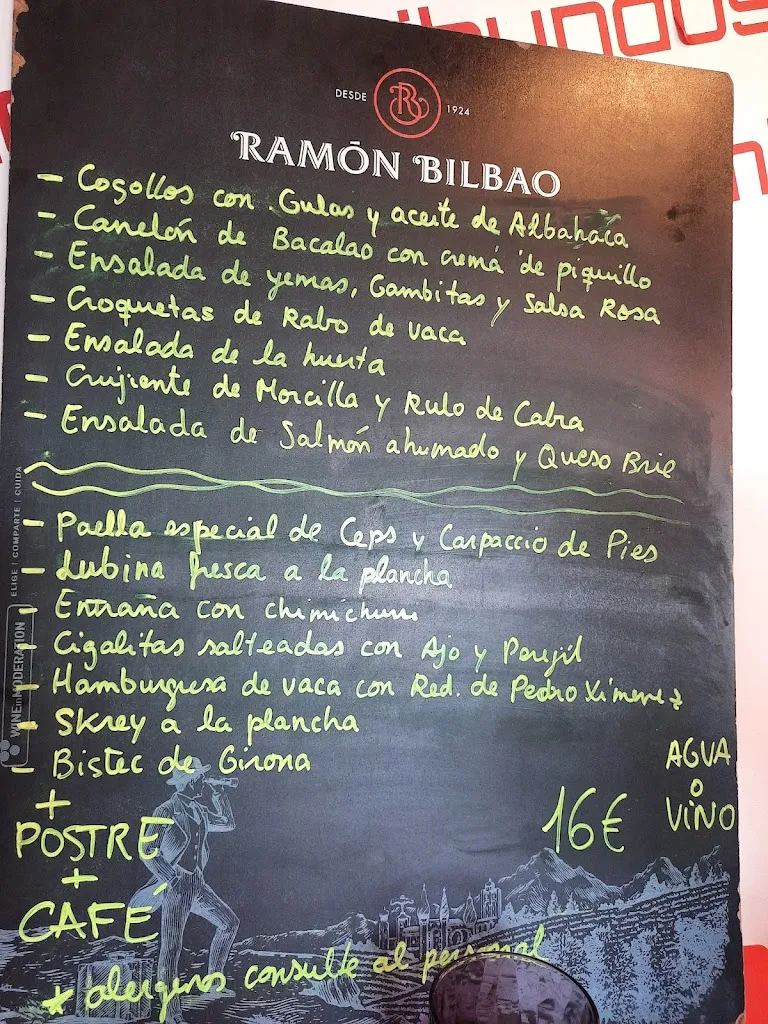 DESDE
1924
RAMÓN BILBAO
- Cogollos con Gulas y aceite de Albahaca
- Canelón de Bacalao con crema de piquillo
- Ensalada de yemas, Gambitas y Salsa Rosa
- Croquetas de Rabo de vaca
- Ensalada de la huerta
- Crujiente de Morcilla y Rulo de Cabra
- Ensalada de Salmón ahumado y Queso Brie
- Paella especial de Ceps y Carpaccio de Pies
- Lubina fresca a la plancha
- Entraña con chimichurri
- Cigalitas salteadas con Ajo y Perejil
- Hamburguesa de vaca con Red. de Pedro Ximenez
- Skrey a la plancha
- Bistec de Girona
+
POSTRE
+
CAFÉ
16€
AGUA
o
VINO
* alergenos consulte al personal
ELIGE | COMPARTE | CUIDA
WINE in MODERATION